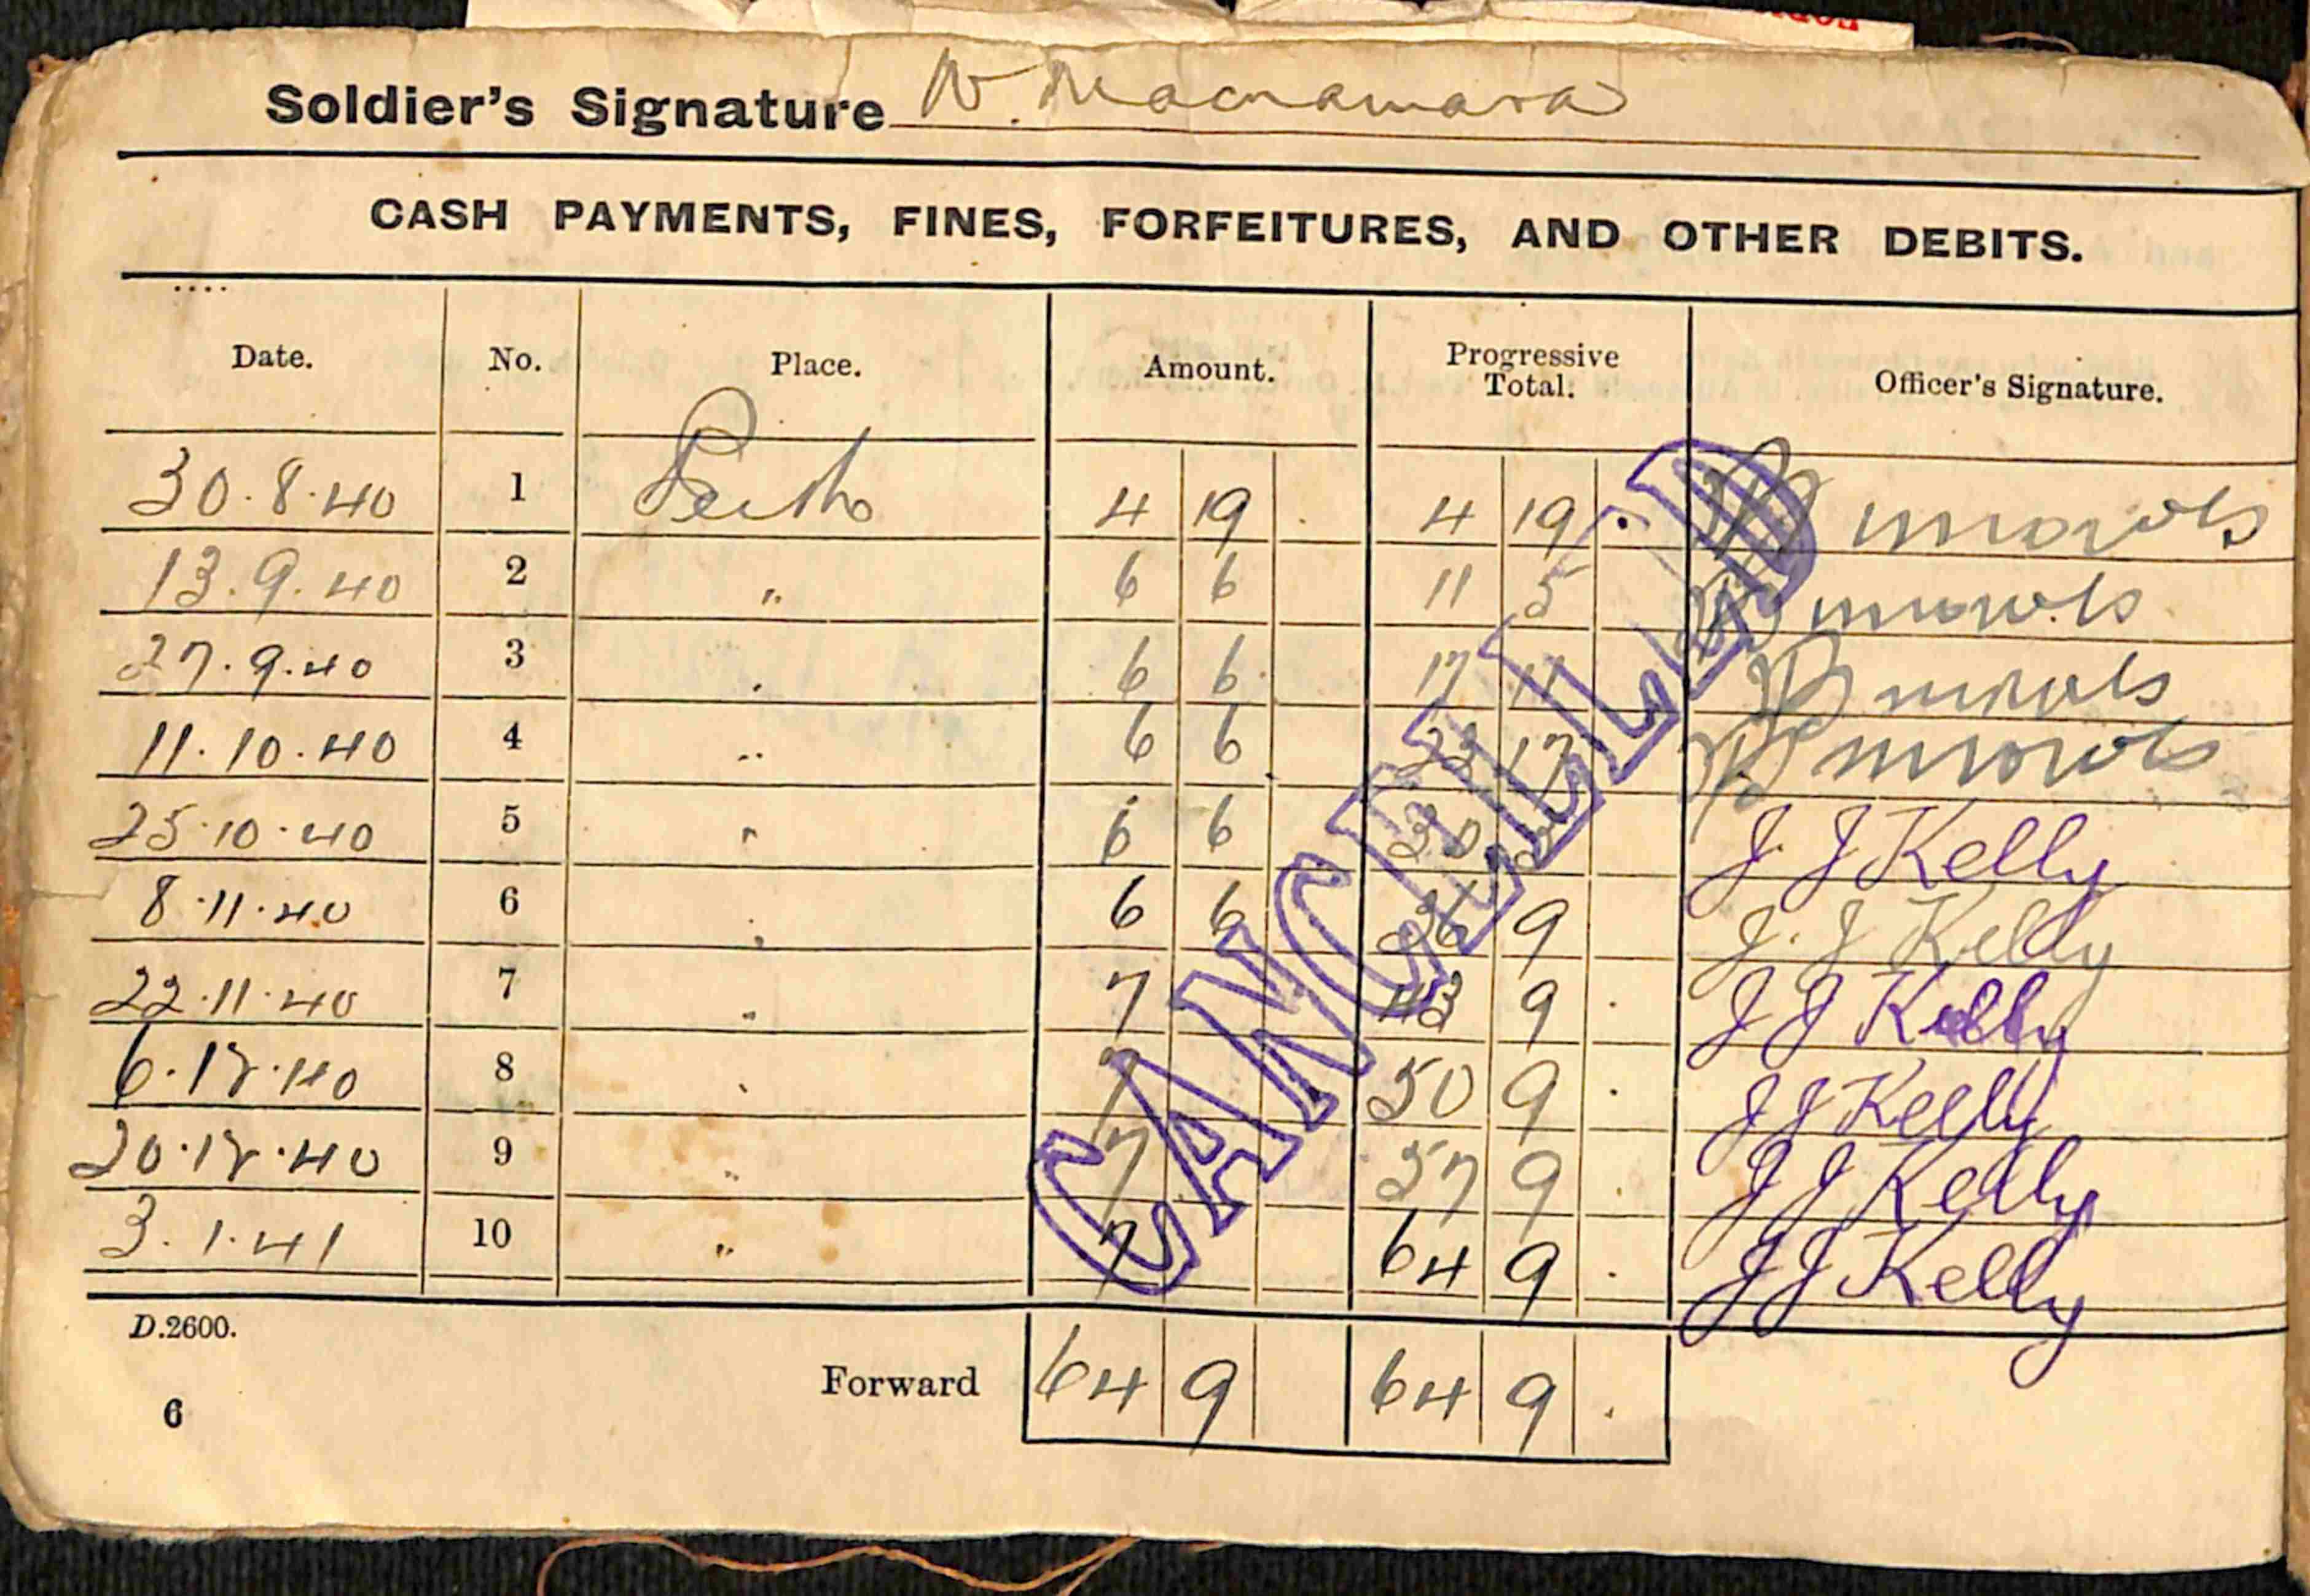 Soldier's Signature W. Macnamara
CASH PAYMENTS, FINES, FORFEITURES, AND OTHER DEBITS.
Date. No. Place. Amount. Progressive Total. Officer's Signature.
30.8.40 1 Perth 4 19 . 4 19 .
13.9.40 2 " 6 6 11 5
27.9.40 3 " 6 6 17 11
11.10.40 4 " 6 6 23 17
25.10.40 5 " 6 6 30 3 J. J Kelly
8.11.40 6 " 6 6 36 9 J. J Kelly
22.11.40 7 " 7 43 9 . J J Kelly
6.12.40 8 " 7 50 9 . J J Kelly
20.12.40 9 " 7 57 9 . J J Kelly
3.1.41 10 " 7 64 9 . J J Kelly
CANCELLED
D.2600.
Forward 64 9 64 9 .
6